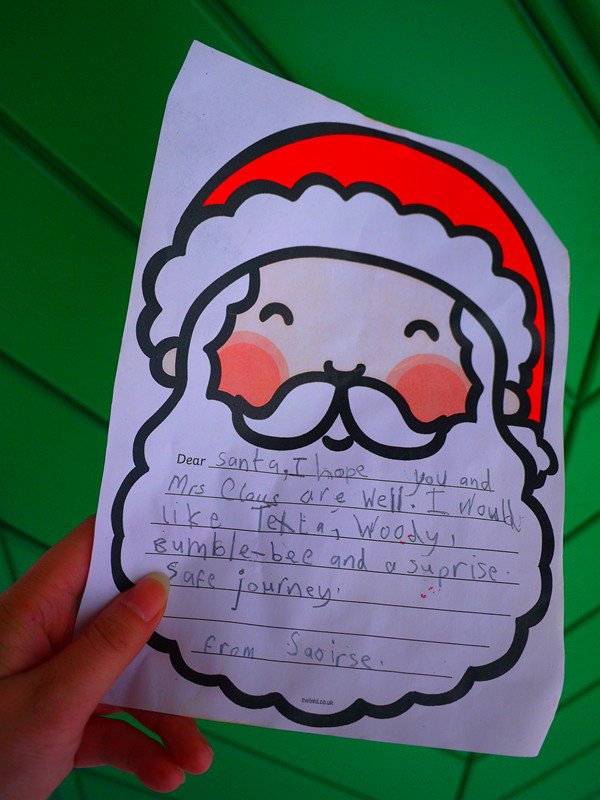 Dear santa, I hope you and
Mrs Claus are well. I would
like Tekta, Woody,
Bumble-bee and a suprise.
Safe journey.
from Saoirse.
twinkl.co.uk